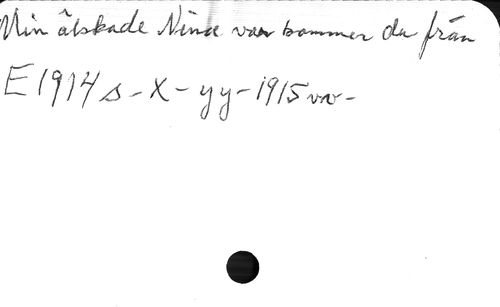 Min älskade Nina var kommer du från
E 1914 s - X - yy - 1915 vv -